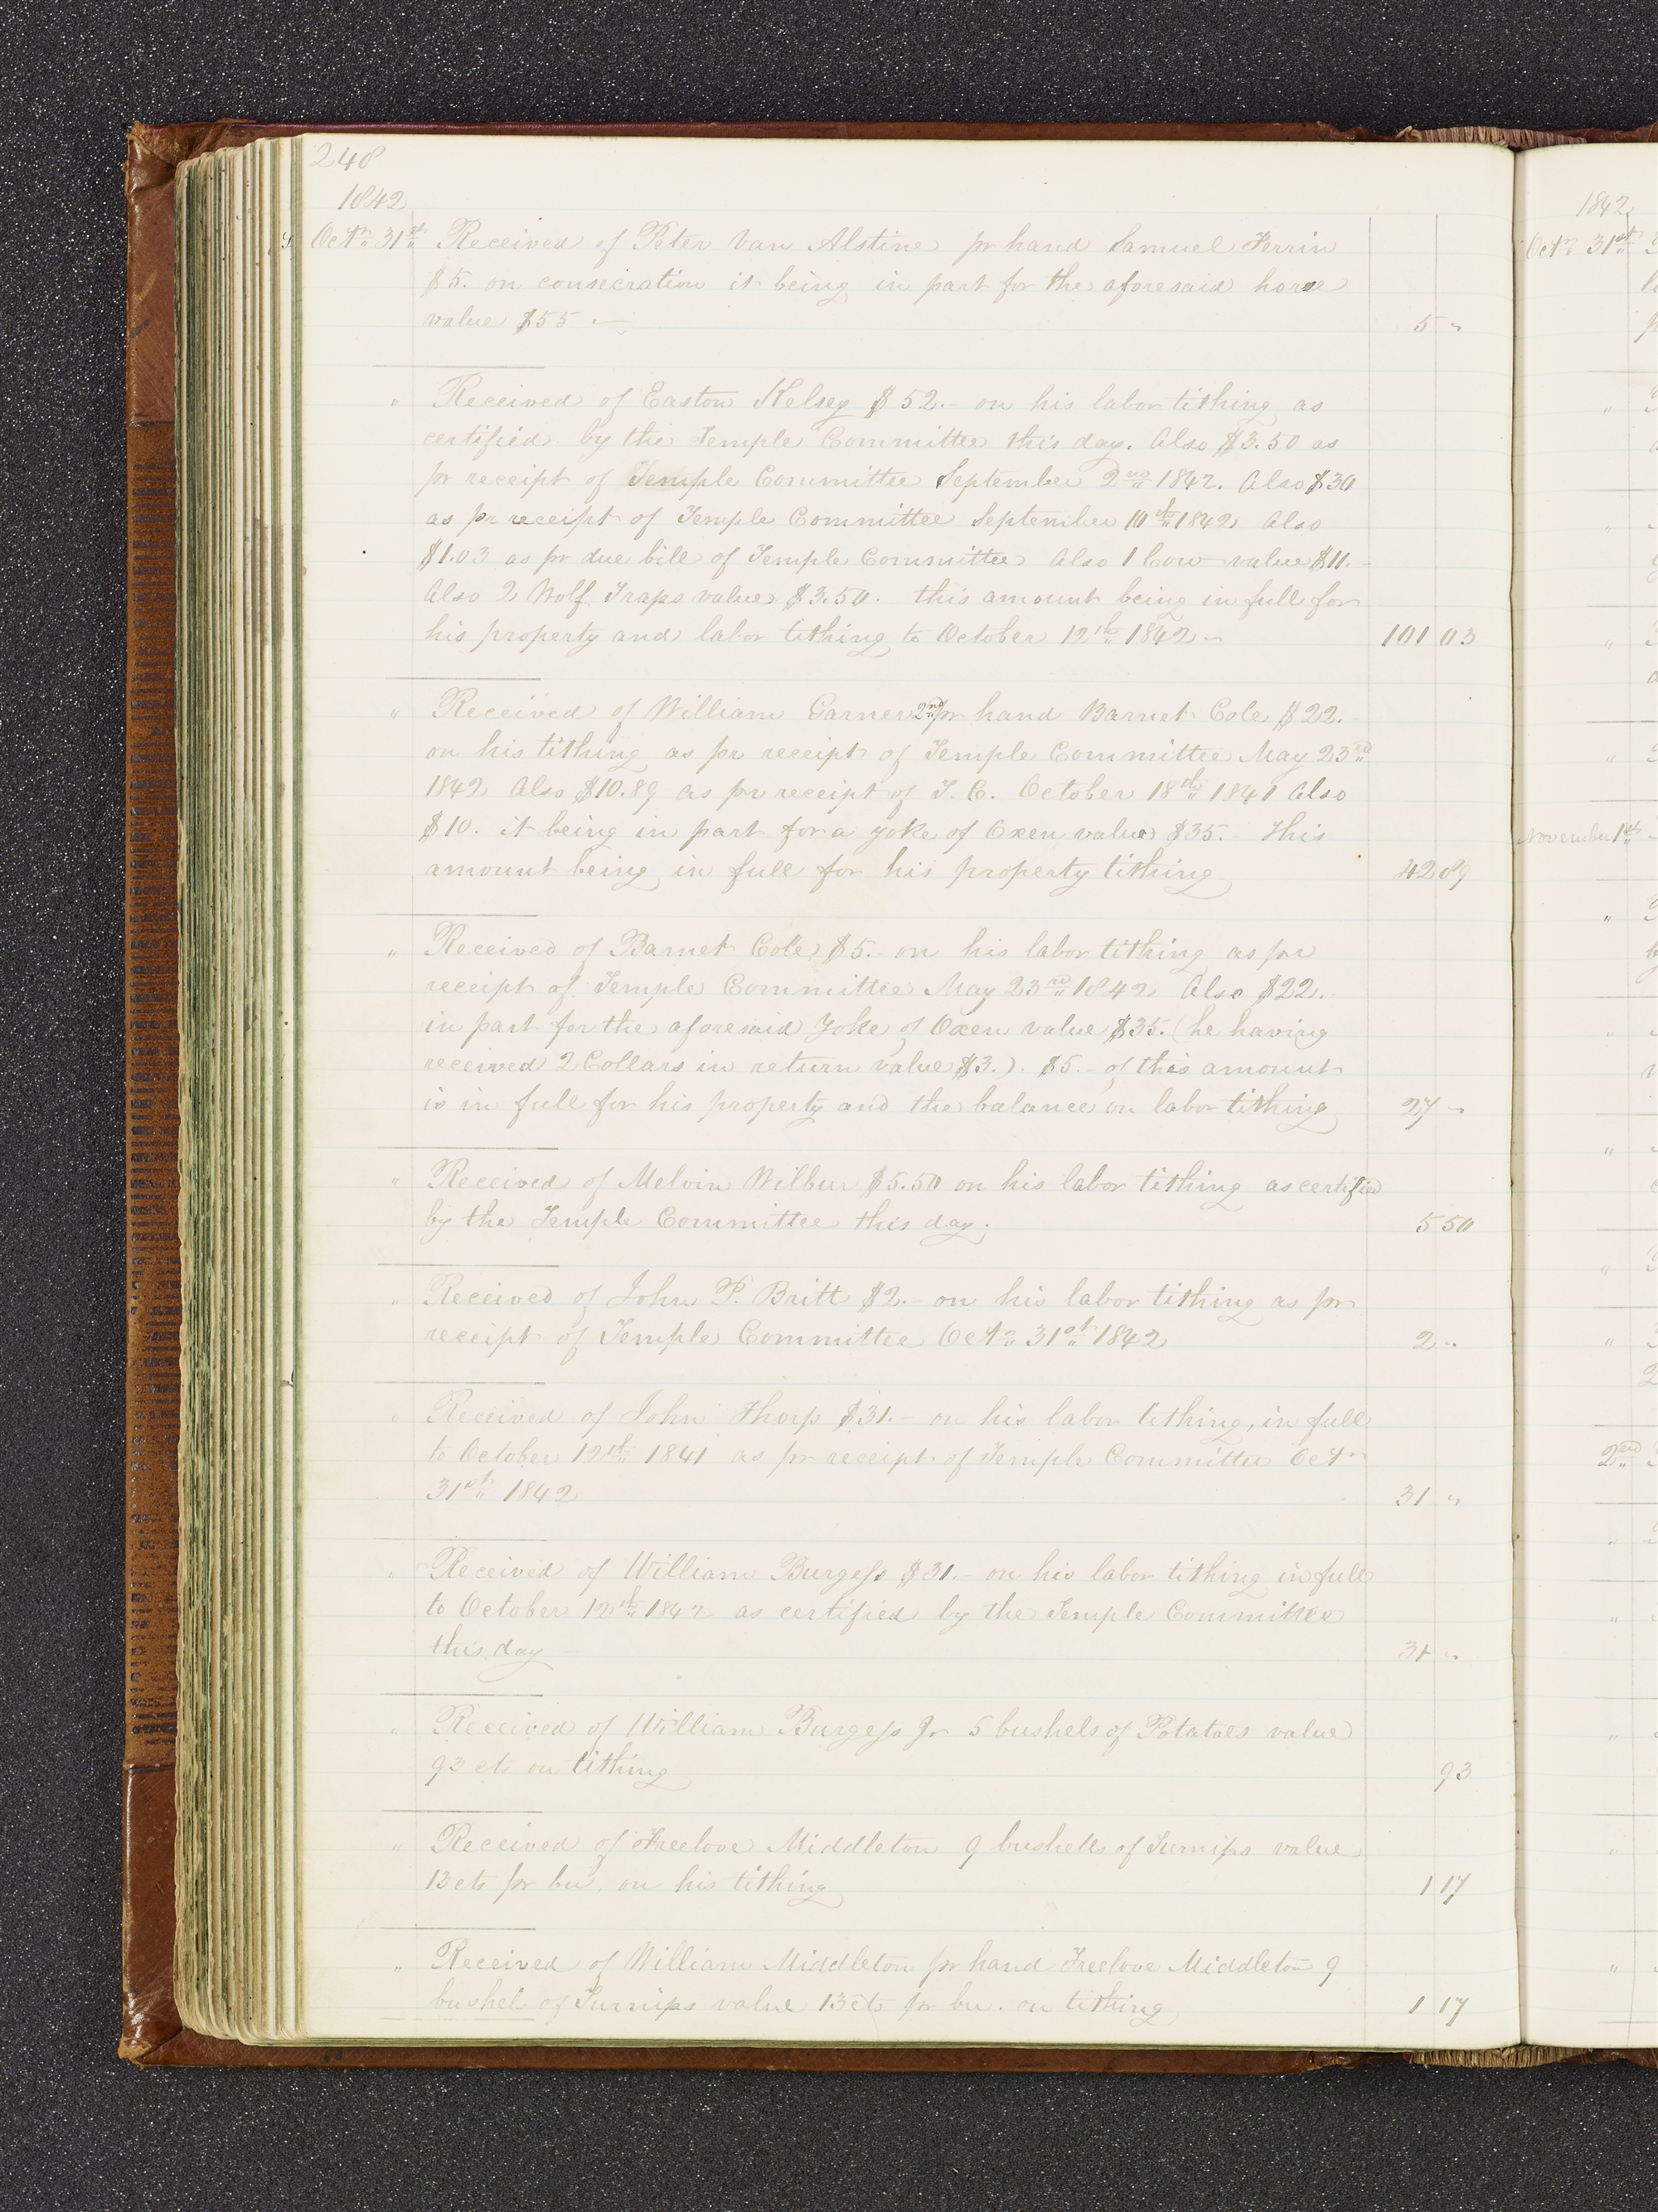 248
1842
Octr 31st Received of Peter Van Alstine pr hand Samuel Ferrin
$5. on consecration it being in part for the aforesaid horse
value $55 5 "
" Received of Easton Kelsey $52.- on his labor tithing as
certified by the Temple Committee this day. Also $3.50 as
pr receipt of Temple Committee September 2nd 1842. Also $30
as pr receipt of Temple Committee September 10th 1842 Also
$1.03 as pr due bill of Temple Committee Also 1 Cow value $11.-
Also 2 Wolf Traps value $3.50. this amount being in full for
his property and labor tithing to October 12th 1842 101 03
" Received of William Garner 2nd pr hand Barnet Cole $22.
on his tithing as pr receipt of Temple Committee May 23rd
1842 Also $10.89 as pr receipt of T. C. October 18th 1841 Also
$10. it being in part for a yoke of Oxen value $35.- This
amount being in full for his property tithing 42 89
" Received of Barnet Cole $5.- on his labor tithing as pr
receipt of Temple Committee May 23rd 1842 Also $22.-
in part for the aforesaid Yoke of Oxen value $35. (he having
received 2 Collars in return value $3.). $5.- of this amount
is in full for his property and the balance on labor tithing 27 "
" Received of Melvin Wilbur $5.50 on his labor tithing as certified
by the Temple Committee this day. 5 50
" Received of John P. Britt $2.- on his labor tithing as pr
receipt of Temple Committee Octr 31st 1842 2 "
" Received of John Thorp $31.- on his labor tithing, in full
to October 12th 1841 as pr receipt of Temple Committee Octr
31st 1842 31 "
" Received of William Burgess $31.- on his labor tithing in full
to October 12th 1842 as certified by the Temple Committee
this day 31 "
" Received of William Burgess Jr 5 bushels of Potatoes value
93 cts on tithing 93
" Received of Freelove Middleton 9 bushells of Turnips value
13 cts pr bu. on his tithing 1 17
" Received of William Middleton pr hand Freelove Middleton 9
bushels of Turnips value 13 cts pr bu. on tithing 1 17
1842
Octr 31st
November 1st
2nd